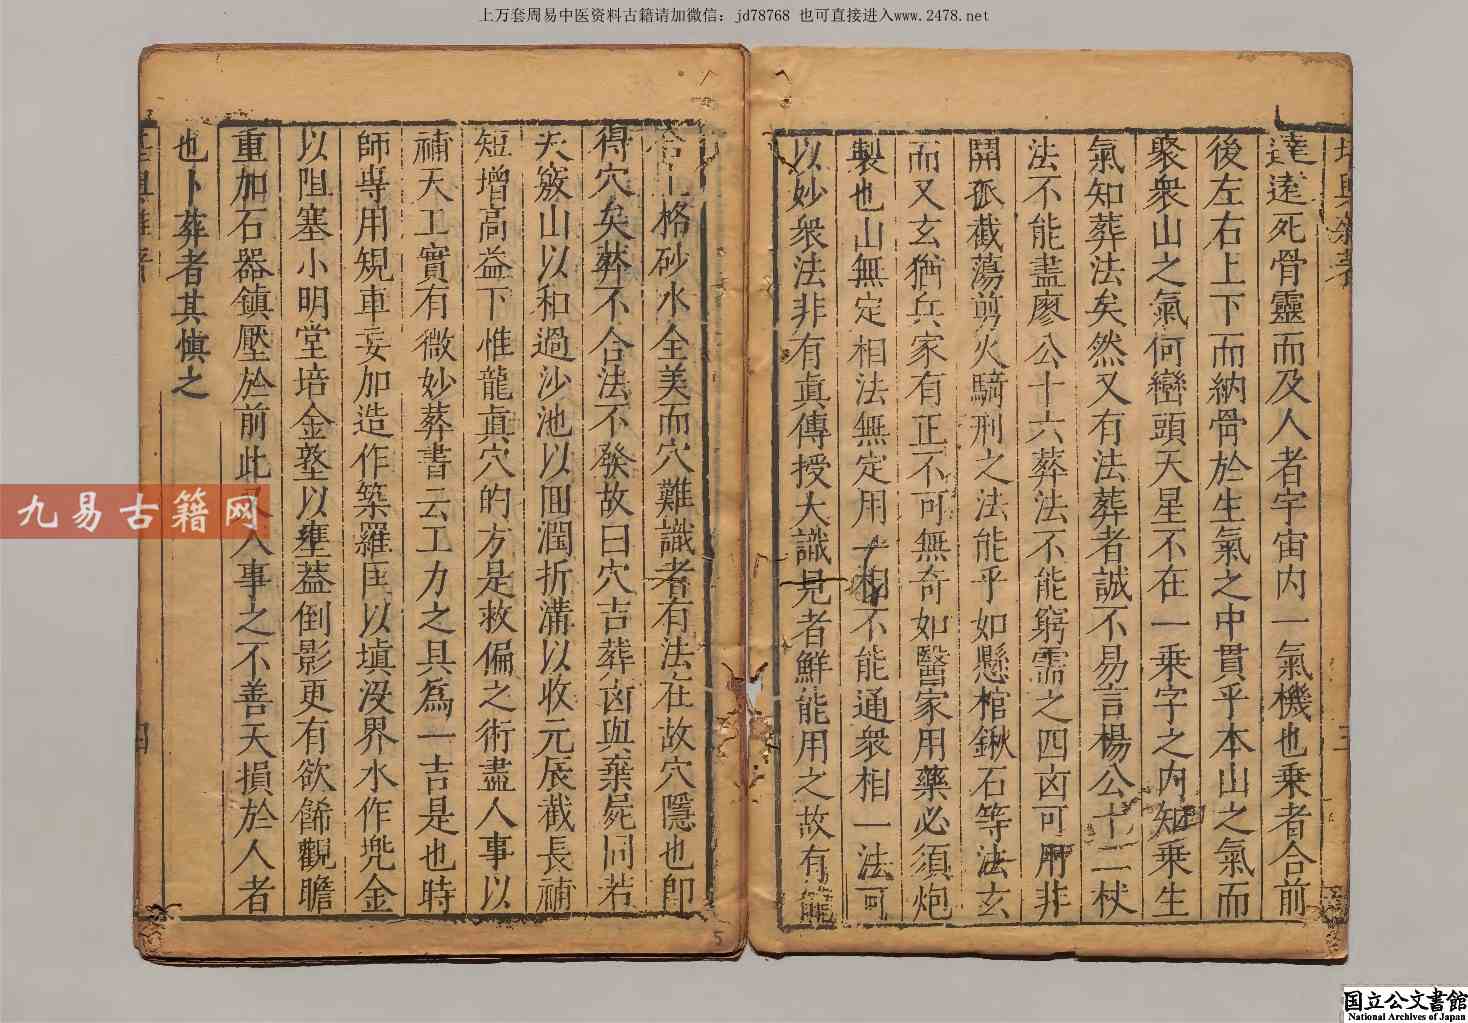 上万套周易中医资料古籍请加微信：jd78768 也可直接进入www.2478.net
達遠死骨靈而及人者宇宙内一氣機也乗者合前
後左右上下而納骨於生氣之中貫乎本山之氣而
聚衆山之氣何巒頭天星不在一乗字之内知乗生
氣知葬法矣然又有法葬者誠不易言楊公十二杖
法不能盡廖公十六葬法不能窮需之四凶可用非
開孤截蕩剪火騎刑之法能乎如懸棺鍬石等法玄
而又玄猶兵家有正不可無奇如醫家用藥必須炮
製也山無定相法無定用一相不能通衆相一法可
以妙衆法非有眞傳授大識見者鮮能用之故有能
合上格砂水全美而穴難識者有法在故穴隱也卽
得穴矣葬不合法不發故曰穴吉葬凶與棄屍同若
夫竅山以和過沙池以囬潤折溝以收元辰截長補
短增高益下惟龍眞穴的方是救偏之術盡人事以
補天工實有微妙葬書云工力之具爲一吉是也時
師專用䂓車妄加造作築羅囯以塡没界水作兠金
以阻塞小明堂培金墪以壅葢倒影更有欲餙觀瞻
重加石器鎮壓於前此人事之不善天損於人者
也卜葬者其愼之
四
九易古籍网
5
国立公文書館
National Archives of Japan